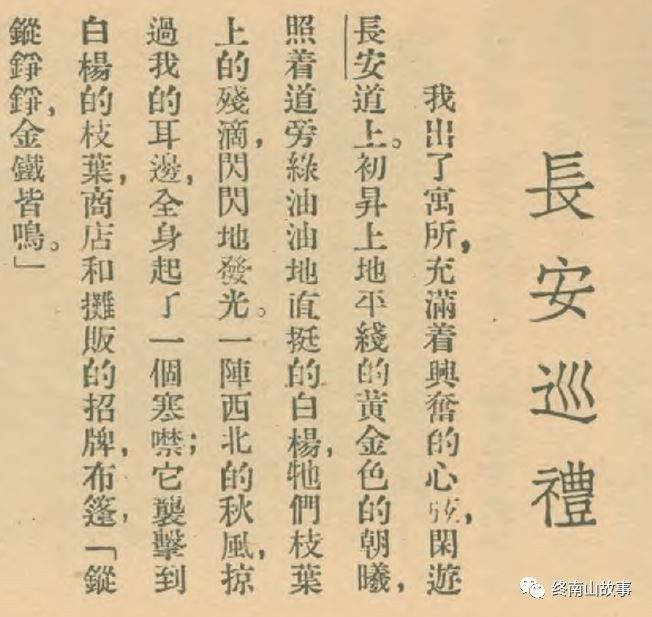 長安巡禮
我出了寓所，充滿着興奮的心弦，閑遊
長安道上。初昇上地平綫的黃金色的朝曦，
照着道旁綠油油地直挺的白楊，牠們枝葉
上的殘滴，閃閃地發光。一陣西北的秋風，掠
過我的耳邊，全身起了一個寒噤；它襲擊到
白楊的枝葉，商店和攤販的招牌，布篷，「鏦
鏦錚錚，金鐵皆鳴。」
终南山故事